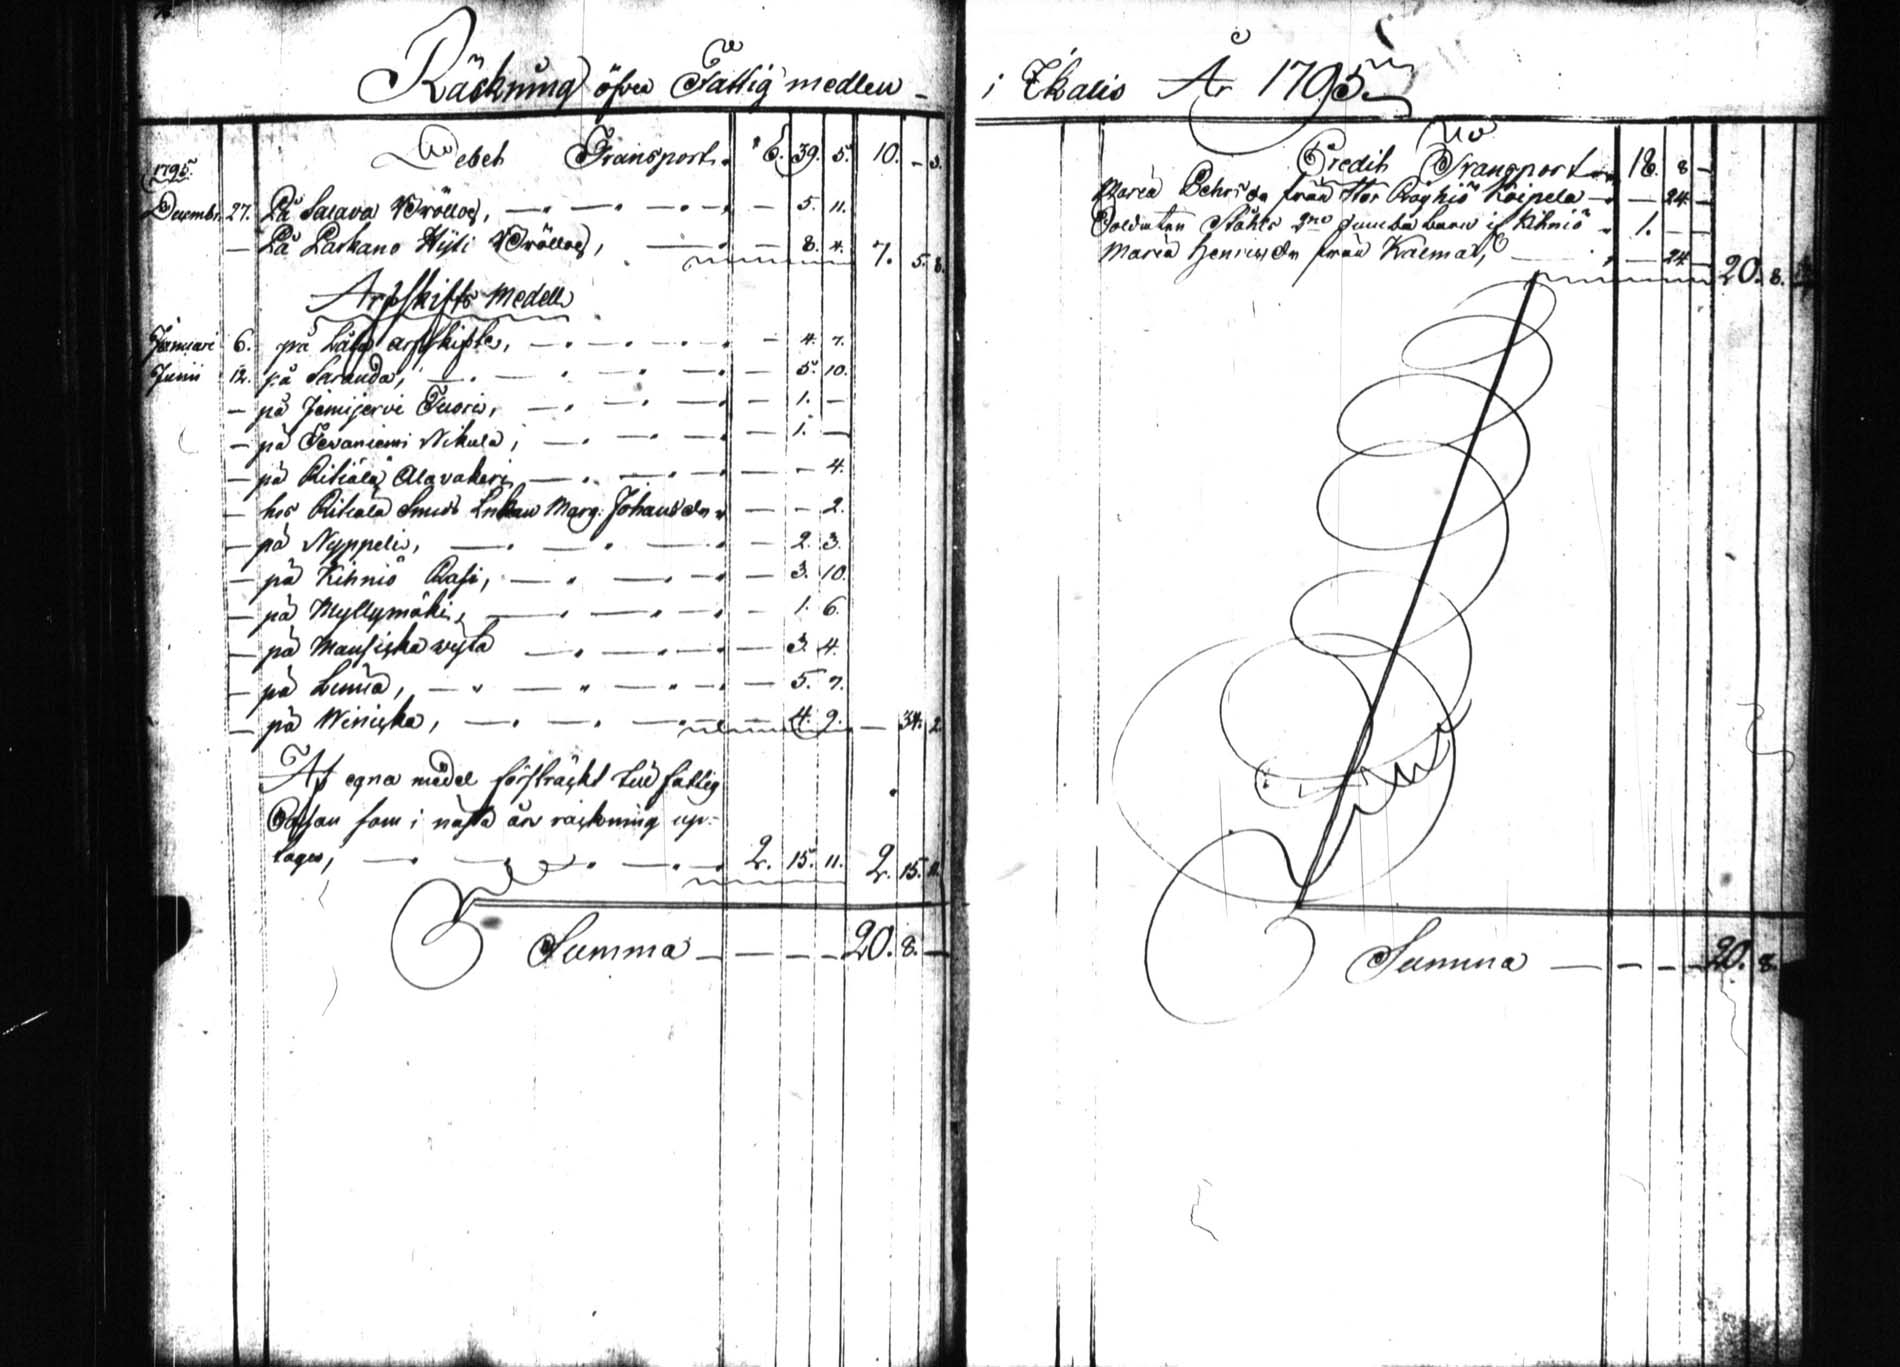 Räckning öfver Fattig medlen
1795 Debet Transport 6. 39. 5. 10. - 3.
Decembr. 27. På Salava Bröllop, 5. 11.
På Parkano Hyti Bröllop, 8. 4. 7. 5. 8.
Arfskifts Medell
Januari 6. på arfskifte, 4. 7.
Junii 12. på Saranda, 5. 10.
på Jämijervi Tuoris, 1. -
på Tevaniemi Nikula, 1. -
på Ritiala Alavakeri 4.
hos Ritiala Smeds Enkan Marg. Johansdr 2.
på Nyppelis, 2. 3.
på Kihniö Rasi, 3. 10.
på Myllymäki, 1. 6.
på Mansicka 3. 4.
på Lenna, 5. 7.
på Winicka, 4. 9. - 34. 2.
Af egna medel förskräckt till fattig
Cassan som i nästa års räckning up-
tages, 2. 15. 11. 2. 15. 11.
Summa 20. 8. -
i Ikalis År 1795
Credit Transport 18. 8 -
Maria från Stor Röyhiö Koipela - 24. -
Soldaten Ståhls dumba barn i Kihniö 1. - -
Maria Henricsdr från - 24 - 20. 8.
Summa 20. 8.